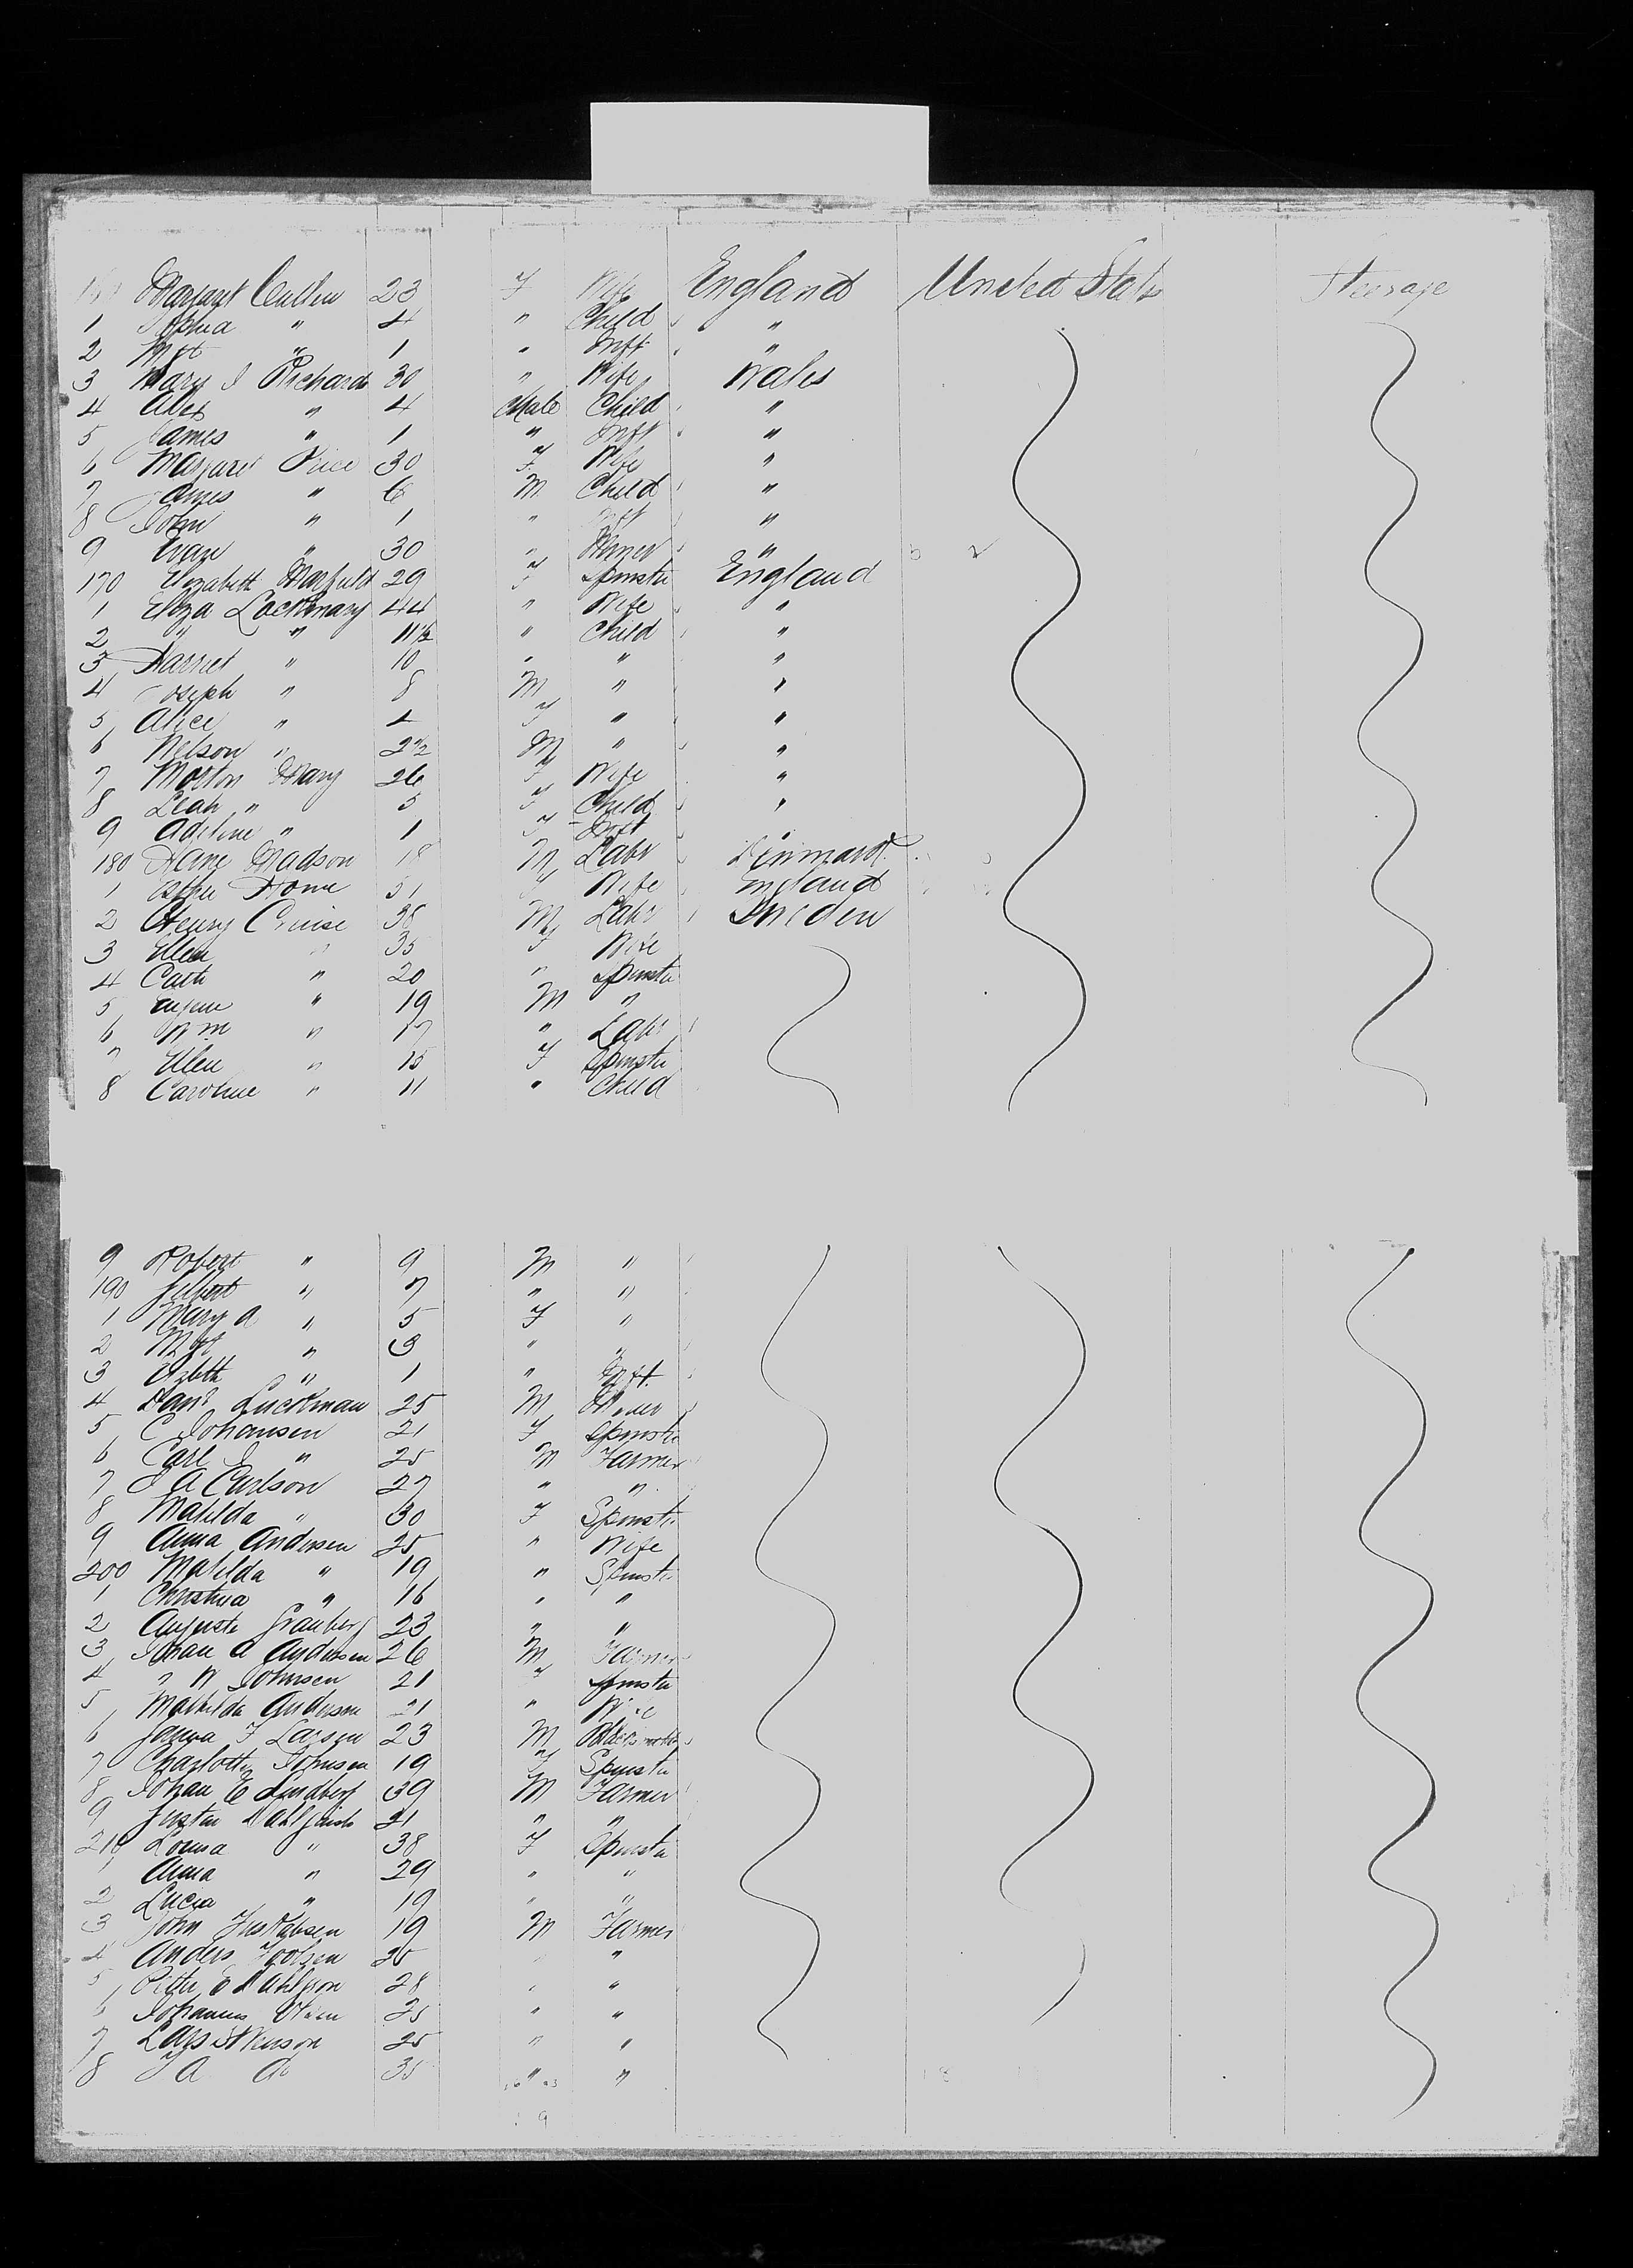 160 Margaret Cullen 23 F Wife England United States Steerage
1 Sophia " 4 " Child "
2 Mgt " 1 " Inft "
3 Mary J Richards 30 " Wife Wales
4 Alex " 4 Male Child "
5 James " 1 " Inft "
6 Margaret Price 30 F Wife "
7 James " 6 M Child "
8 John " 1 " Inft "
9 " 30 " Miner "
170 Elizabeth 29 F Spinster England
1 Eliza Lockinary 44 " Wife "
2 " " 11½ " Child "
3 Harriet " 10 " " "
4 Joseph " 8 M " "
5 Alice " 4 F " "
6 Nelson " 2½ M " "
7 Morton Mary 26 F Wife "
8 Leah " 5 F Child "
9 Adeline " 1 F Inft "
180 Hans Madson 18 M Labr Denmark
1 Esther Howe 51 F Wife England
2 Henry Cruise 38 M Labr Sweden
3 Ellen " 35 F Wife
4 Cath " 20 " Spinster
5 Eugene " 19 M "
6 Wm " 17 " Labr
7 Ellen " 15 F Spinster
8 Caroline " 11 " Child
9 Robert " 9 M "
190 Gilbert " 7 " "
1 Mary A " 5 F "
2 Mgt " 3 " "
3 Elzbth " 1 " Inft.
4 Danl Luckman 25 M Miner
5 C Johansen 21 F Spinster
6 Carl J " 25 M Farmer
7 J A Carlson 27 " "
8 Matilda " 30 F Spinstr
9 Anna Andersen 25 " Wife
200 Matilda " 19 " Spinstr
1 Christina " 16 " "
2 Augusta Granberg 23 " "
3 Johan A Andersen 26 M Farmer
4 " W Johnsen 21 F Spinster
5 Mathilda Anderson 21 " Wife
6 F Larsen 23 M Blacksmith
7 Charlotte Johnsen 19 F Spinster
8 Johan E Lindberg 39 M Farmer
9 Gustav 21 " "
210 Louisa " 38 F Spinster
1 Anna " 29 " "
2 Lucia " 19 " "
3 John Gustafsen 19 M Farmer
4 Anders 25 " "
5 Peter 28 " "
6 Johannes Olsen 25 " "
7 Lars 25 " "
8 J A do 35 " "